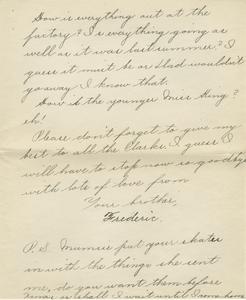 How is everything out at the
factory? Is everything going as
well as it was last summer? I
guess it must be or Dad wouldn't
go away I know that.
How is the younger Miss King?
eh!
Please don't forget to give my
best to all the Clarks. I guess I
will have to stop now so goodbye
with lots of love from
Your brother,
Frederic.
P.S. Mumsie put your skates
in with the things she sent
me, do you want them before
or shall I wait until I come home